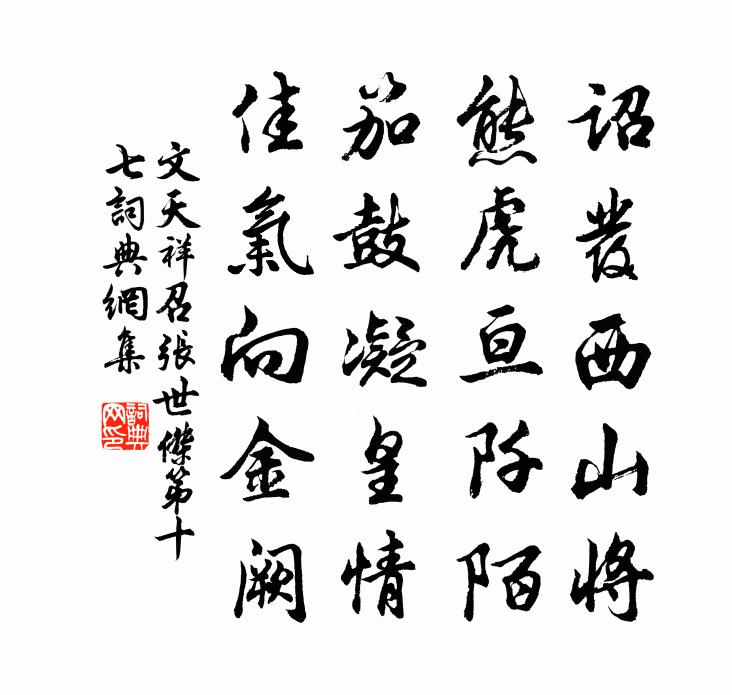 詔發西山將
熊虎亘阡陌
笳鼓凝皇情
佳氣向金闕
文天祥召張世傑第十
七詞典網集
詞典網印